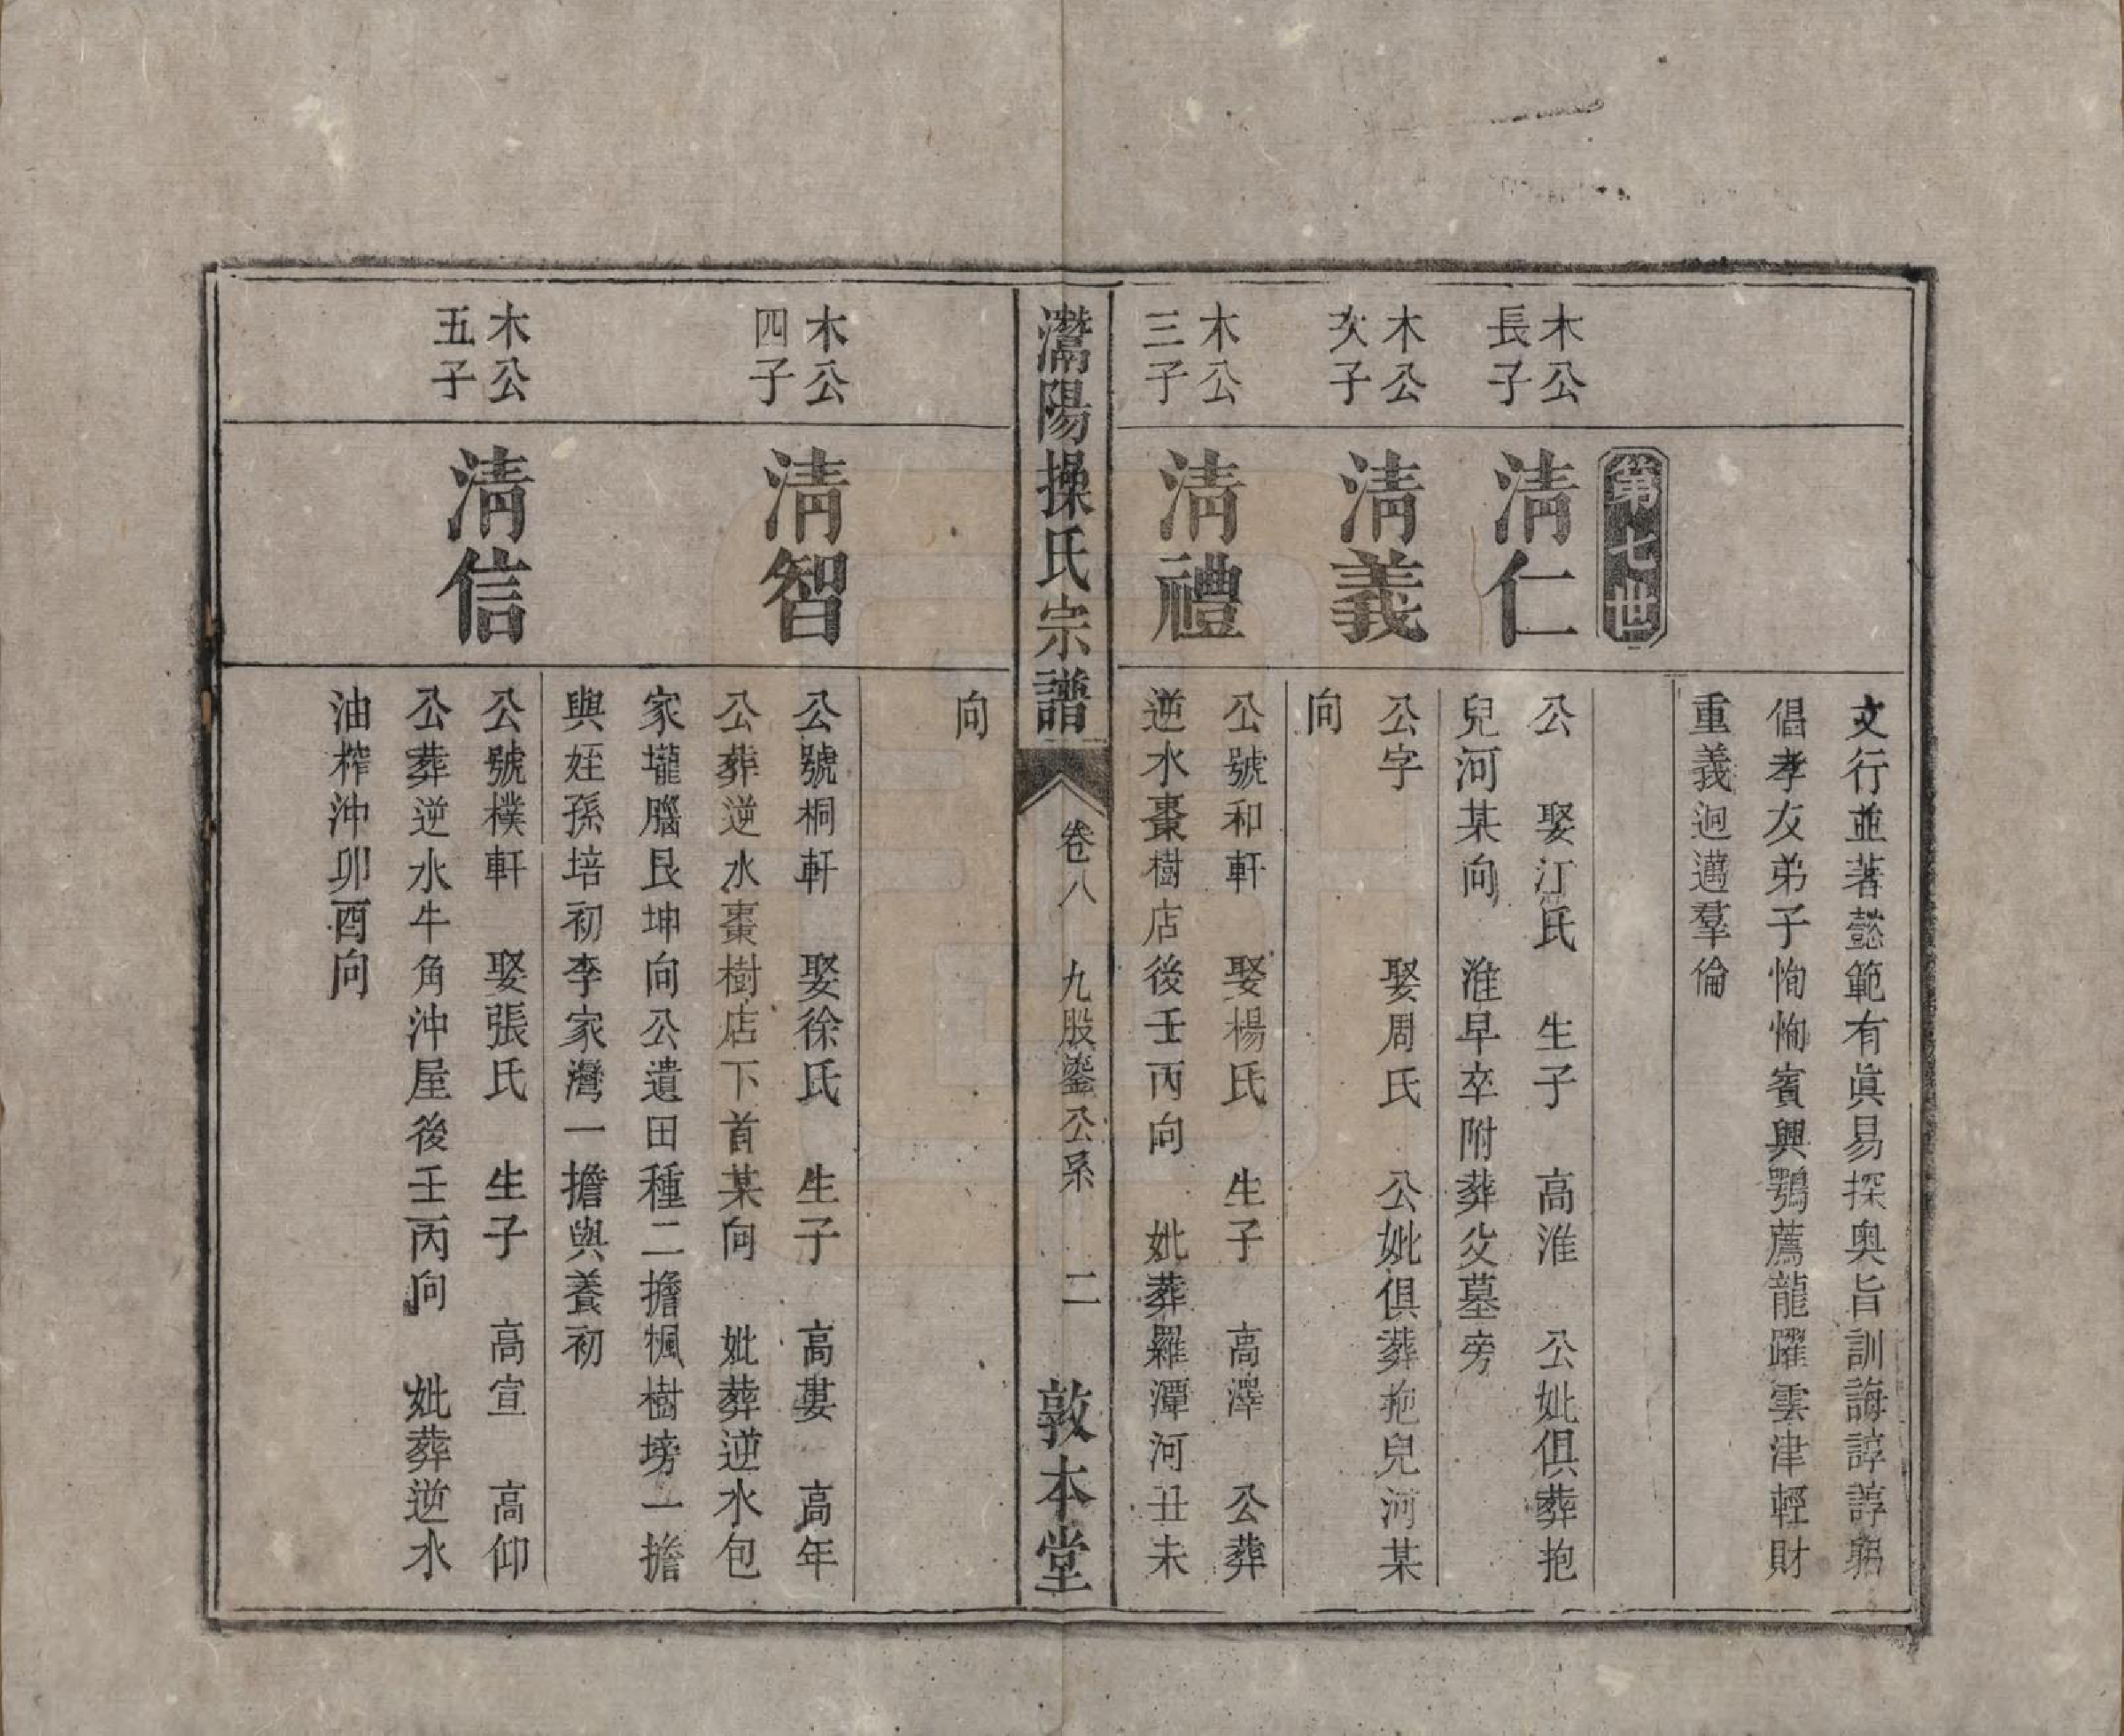 文行並著懿範有眞易探奥旨訓誨諄諄躬
倡孝友弟子恂恂賓興鶚薦龍躍雲津輕財
重義迥邁羣倫
第七世
木公
長子
淸仁
公 娶汪氏 生子 高淮 公妣俱葬抱
兒河某向 淮早卒附葬父墓旁
木公
次子
淸義
公字 娶周氏 公妣俱葬抱兒河某
向
木公
三子
淸禮
公號和軒 娶楊氏 生子 高澤 公葬
逆水棗樹店後壬丙向 妣葬羅潭河丑未
灊陽操氏宗譜
卷八 九股鎏公系 二
敦本堂
向
木公
四子
淸智
公號桐軒 娶徐氏 生子 高萋 高年
公葬逆水棗樹店下首某向 妣葬逆水包
家壠腦艮坤向公遺田種二擔楓樹塝一擔
與姪孫培初李家灣一擔與養初
木公
五子
淸信
公號樸軒 娶張氏 生子 高宣 高仰
公葬逆水牛角沖屋後壬丙向 妣葬逆水
油榨沖卯酉向